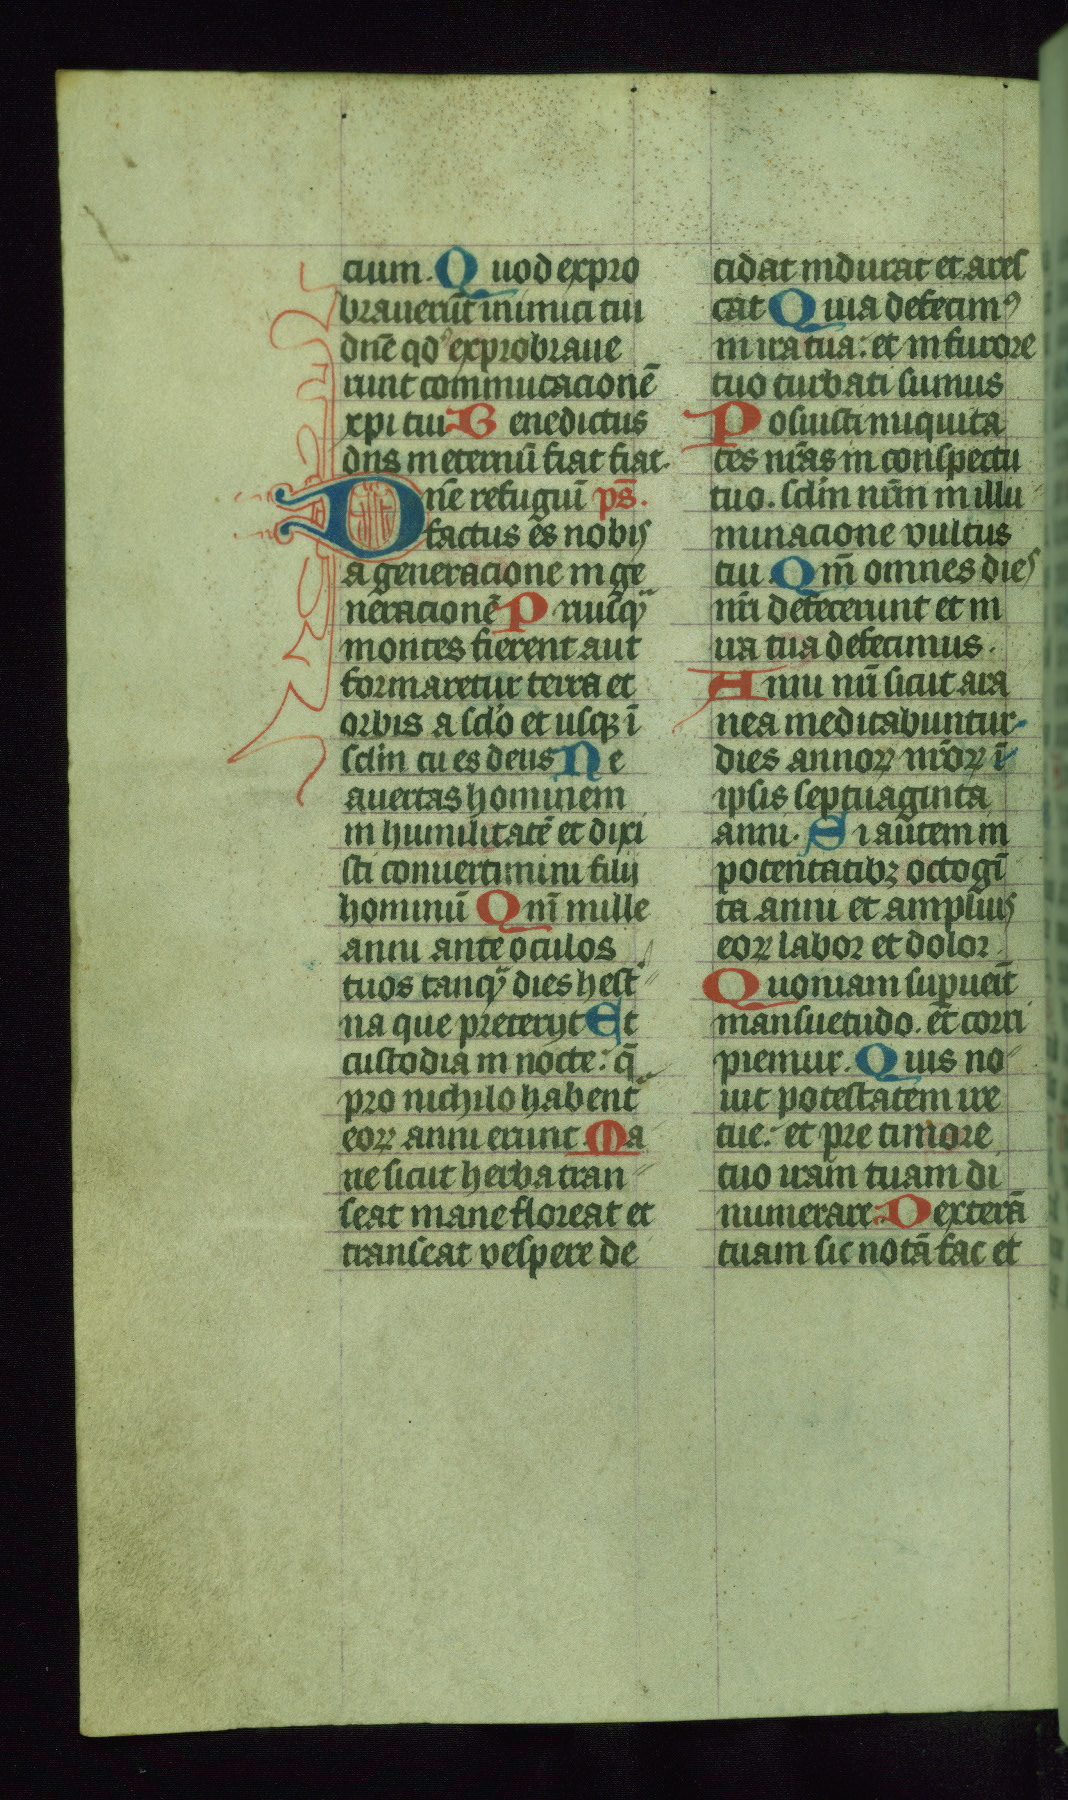 cium. Quod expro
braueru̅t inimici tui
dn̅e qd exprobraue
runt commutacione̅
xpi tui Benedictus
dn̅s in eternu̅ fiat fiat.
Dn̅e refugiu̅ ps̅.
factus es nobis
a generacione in ge
neracione̅ Priusq̅
montes fierent aut
formaretur terra et
orbis a sclo̅ et usqꝫ i̅
scl̅m tu es deus Ne
auertas hominem
in humilitate̅ et dixi
sti conuertimini filij
hominu̅ Qm̅ mille
anni ante oculos
tuos tanq̅ dies hest̅
na que preterijt Et
custodia in nocte: q̅
pro nichilo habent̅
eoꝝ anni erunt. Ma
ne sicut herba tran
seat mane floreat et
transeat vespere de
cidat indurat et ares
cat Quia defecimꝰ
in ira tua: et in furore
tuo turbati sumus
Posuisti iniquita
tes nr̅as in conspectu
tuo. scl̅m nr̅m in illu
minacione vultus
tui Qm̅ omnes dies
nr̅i defecerunt et in
ira tua defecimus.
Anni nr̅i sicut ara
nea meditabuntur
dies annoꝝ nr̅oꝝ i̅
ipsis septuaginta
anni. Si autem in
potentatibꝫ octogi̅
ta anni et amplius
eoꝝ labor et dolor.
Quoniam supueit̅
mansuetudo. et corri
piemur. Quis no
uit potestatem ire
tue: et pre timore
tuo iram tuam di
numerare. Dextera̅
tuam sic nota̅ fac et